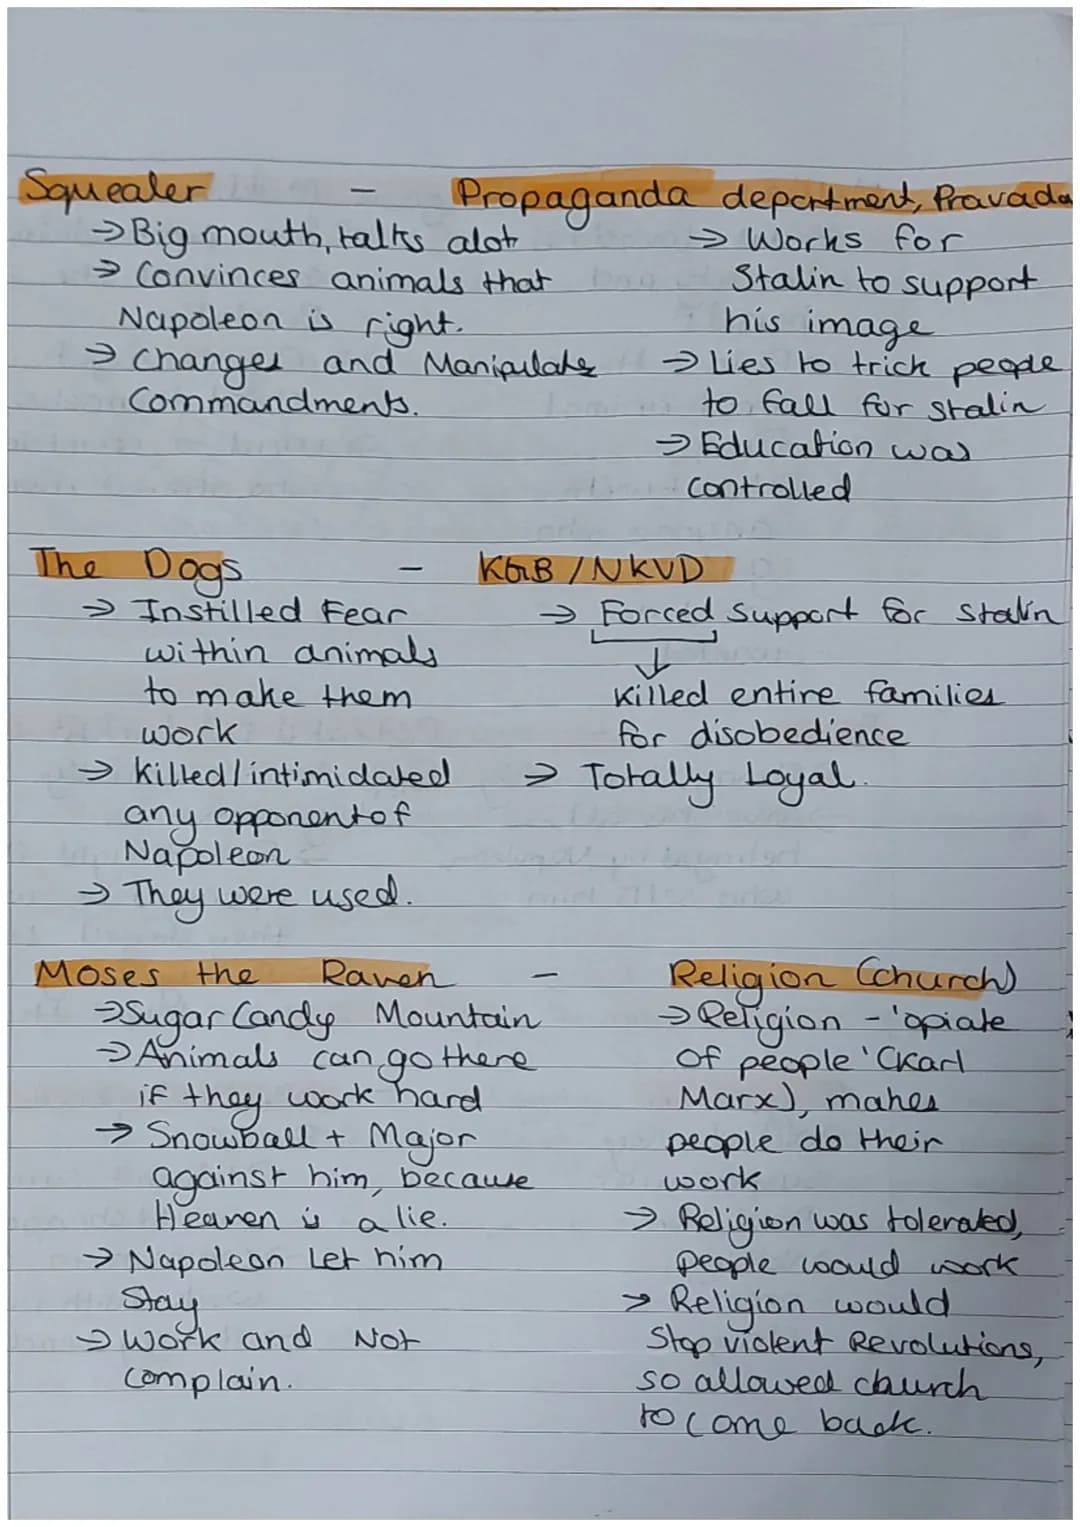 Squealer - Propaganda department, Pravada
→ Big mouth, talks alot
→ Convinces animals that
Napoleon is right.
→ Changes and Manipulate
Commandments.
→ Works for
Stalin to support
his image
→ Lies to trick people
to fall for Stalin
→ Education was
controlled
The Dogs - KGB / NKVD
→ Instilled Fear
within animals
to make them
work
→ Killed/intimidated
any opponent of
Napoleon
→ They were used.
→ Forced support for Stalin
↓
Killed entire families
for disobedience
→ Totally Loyal.
Moses the Raven - Religion (church)
→ Sugar Candy Mountain
→ Animals can go there
if they work hard
→ Snowball + Major
against him, because
Heaven is a lie.
→ Napoleon Let him
Stay
→ Work and Not
complain.
→ Religion - 'opiate
of people' (Karl
Marx), makes
people do their
work
→ Religion was tolerated,
people would work
→ Religion would
Stop violent Revolutions,
so allowed church
to come back.